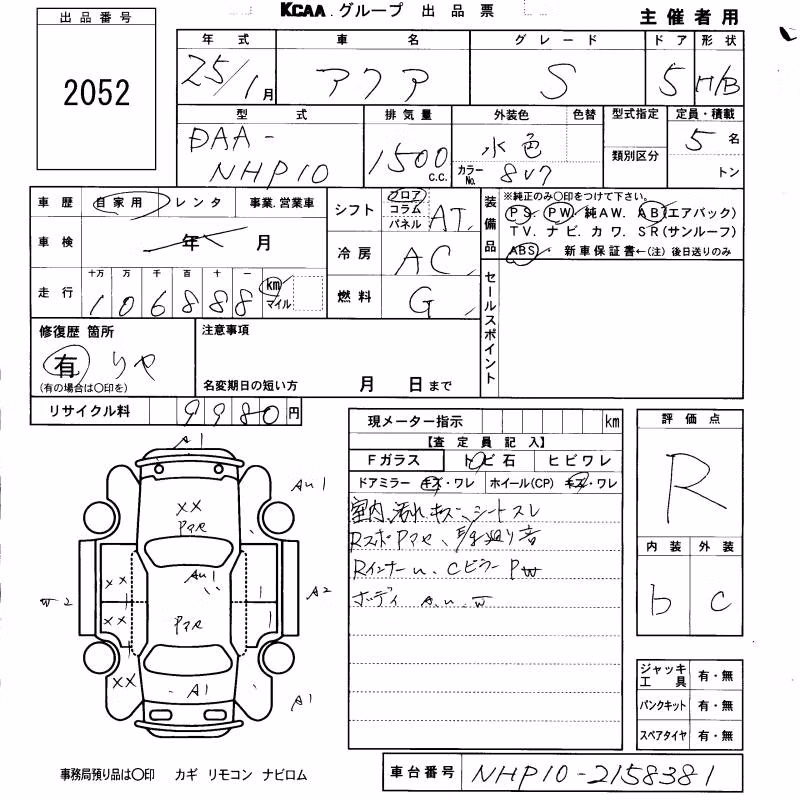 KCAA.グループ 出品票
主催者用
出品番号
2052
年式 車名 グレード ドア 形状
25/1月 アクア S 5 H/B
型式 排気量 外装色 色替 型式指定 定員・積載
DAA-NHP10 1500 c.c. 水色 カラーNo. 8V7 類別区分 5名 トン
車歴 自家用 レンタ 事業.営業車
シフト フロア コラム パネル AT.
装備品 ※純正のみ〇印をつけて下さい。
PS. PW. 純AW. AB(エアバック)
TV. ナビ. カワ. SR(サンルーフ)
ABS. 新車保証書←(注) 後日送りのみ
車検 年 月
冷房 AC
走行 十万 万 千 百 十 一
106888 km マイル
燃料 G
セールスポイント
修復歴 箇所
有
(有の場合は〇印を)
注意事項
名変期日の短い方 月 日まで
リサイクル料 9980円
現メーター指示 km
【査定員記入】
Fガラス トビ石 ヒビワレ
ドアミラー キズ・ワレ ホイール(CP) キズ・ワレ
室内、汚れ キズ、シートスレ
ボディ A.u.w
評価点
R
内装 外装
b c
A1
Au1
XX
Au1
XX
XX
W2
A2
XX
A1
A1
ジャッキ工具 有・無
パンクキット 有・無
スペアタイヤ 有・無
事務局預り品は〇印 カギ リモコン ナビロム
車台番号 NHP10-2158381